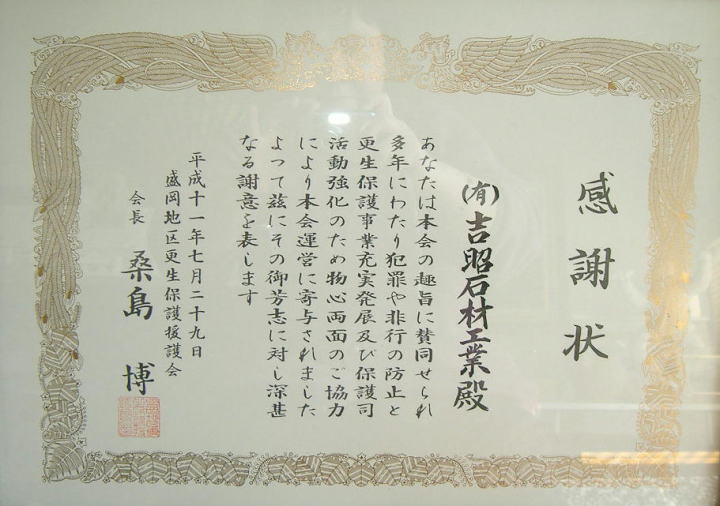 感謝状
(有)吉昭石材工業殿
あなたは本会の趣旨に賛同せられ
多年にわたり犯罪や非行の防止と
更生保護事業充実発展及び保護司
活動強化のため物心両面のご協力
により本会運営に寄与されました
よって茲にその御芳志に対し深甚
なる謝意を表します
平成十一年七月二十九日
盛岡地区更生保護援護会
会長 桑島 博